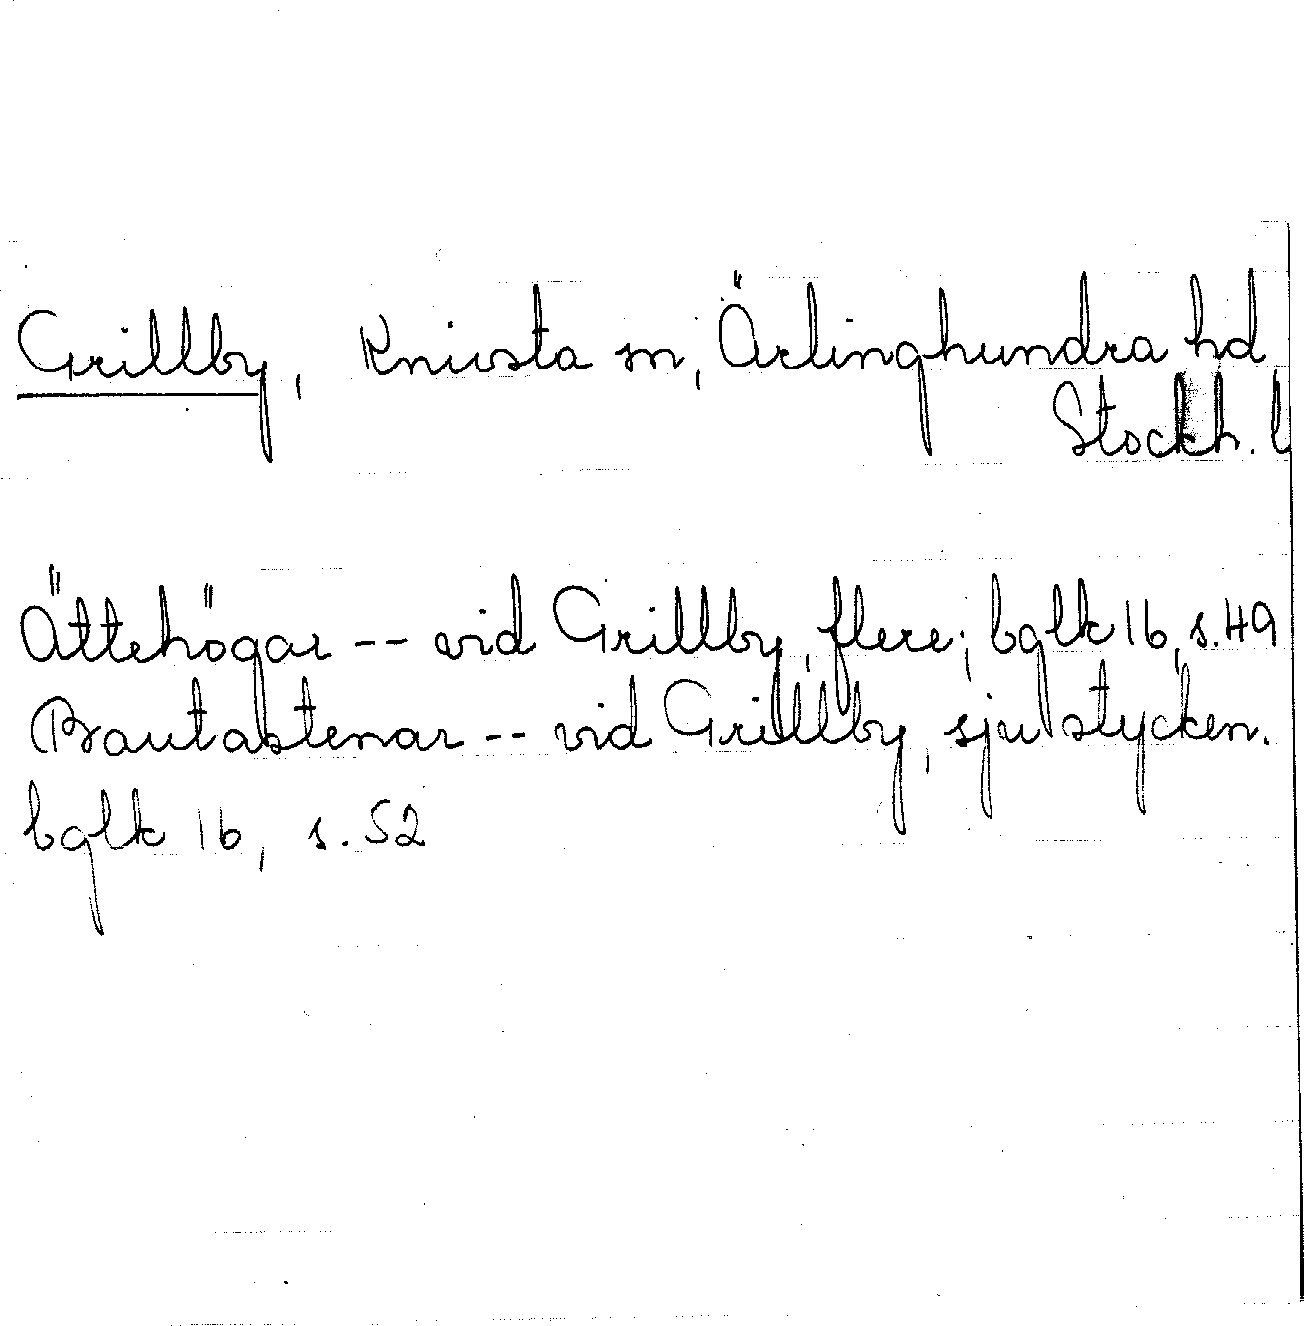 Grillby, Knivsta sn, Ärlinghundra hd
Stockh. l
Ättehögar -- vid Grillby, flere; bglk 16, s. 49
Bautastenar -- vid Grillby, sju stycken.
bglk 16, s. 52